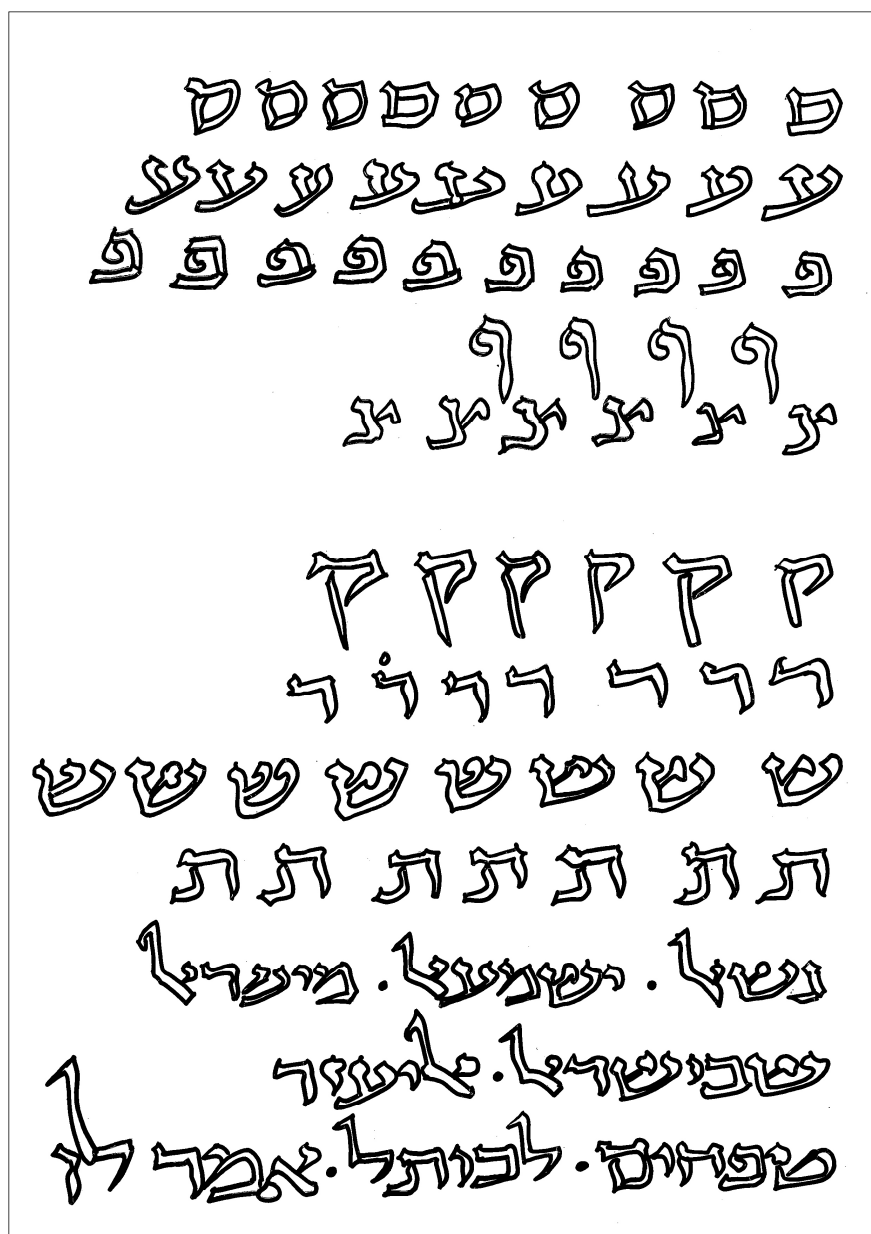 ס ס ס ס ס ס ס ס ס
ע ע ע ע ע ע ע ע ע
פ פ פ פ פ פ פ פ פ פ
ף ף ף ף
צ צ צ צ צ צ
ק ק ק ק ק ק
ר ר ר ר ר ר ר
ש ש ש ש ש ש ש ש
ת ת ת ת ת ת ת
נשﭏ . ישמעﭏ . מישרﭏ
שבישרﭏ . ﭏיעזר
לכותל . אמר